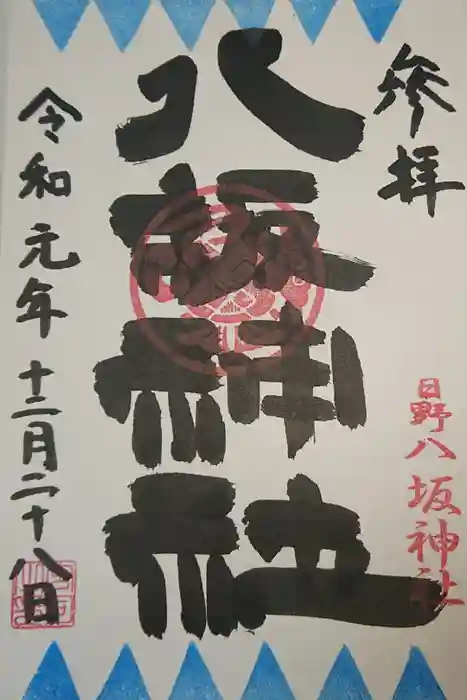 参拝
日野八坂神社
八坂神社
令和元年十二月二十八日